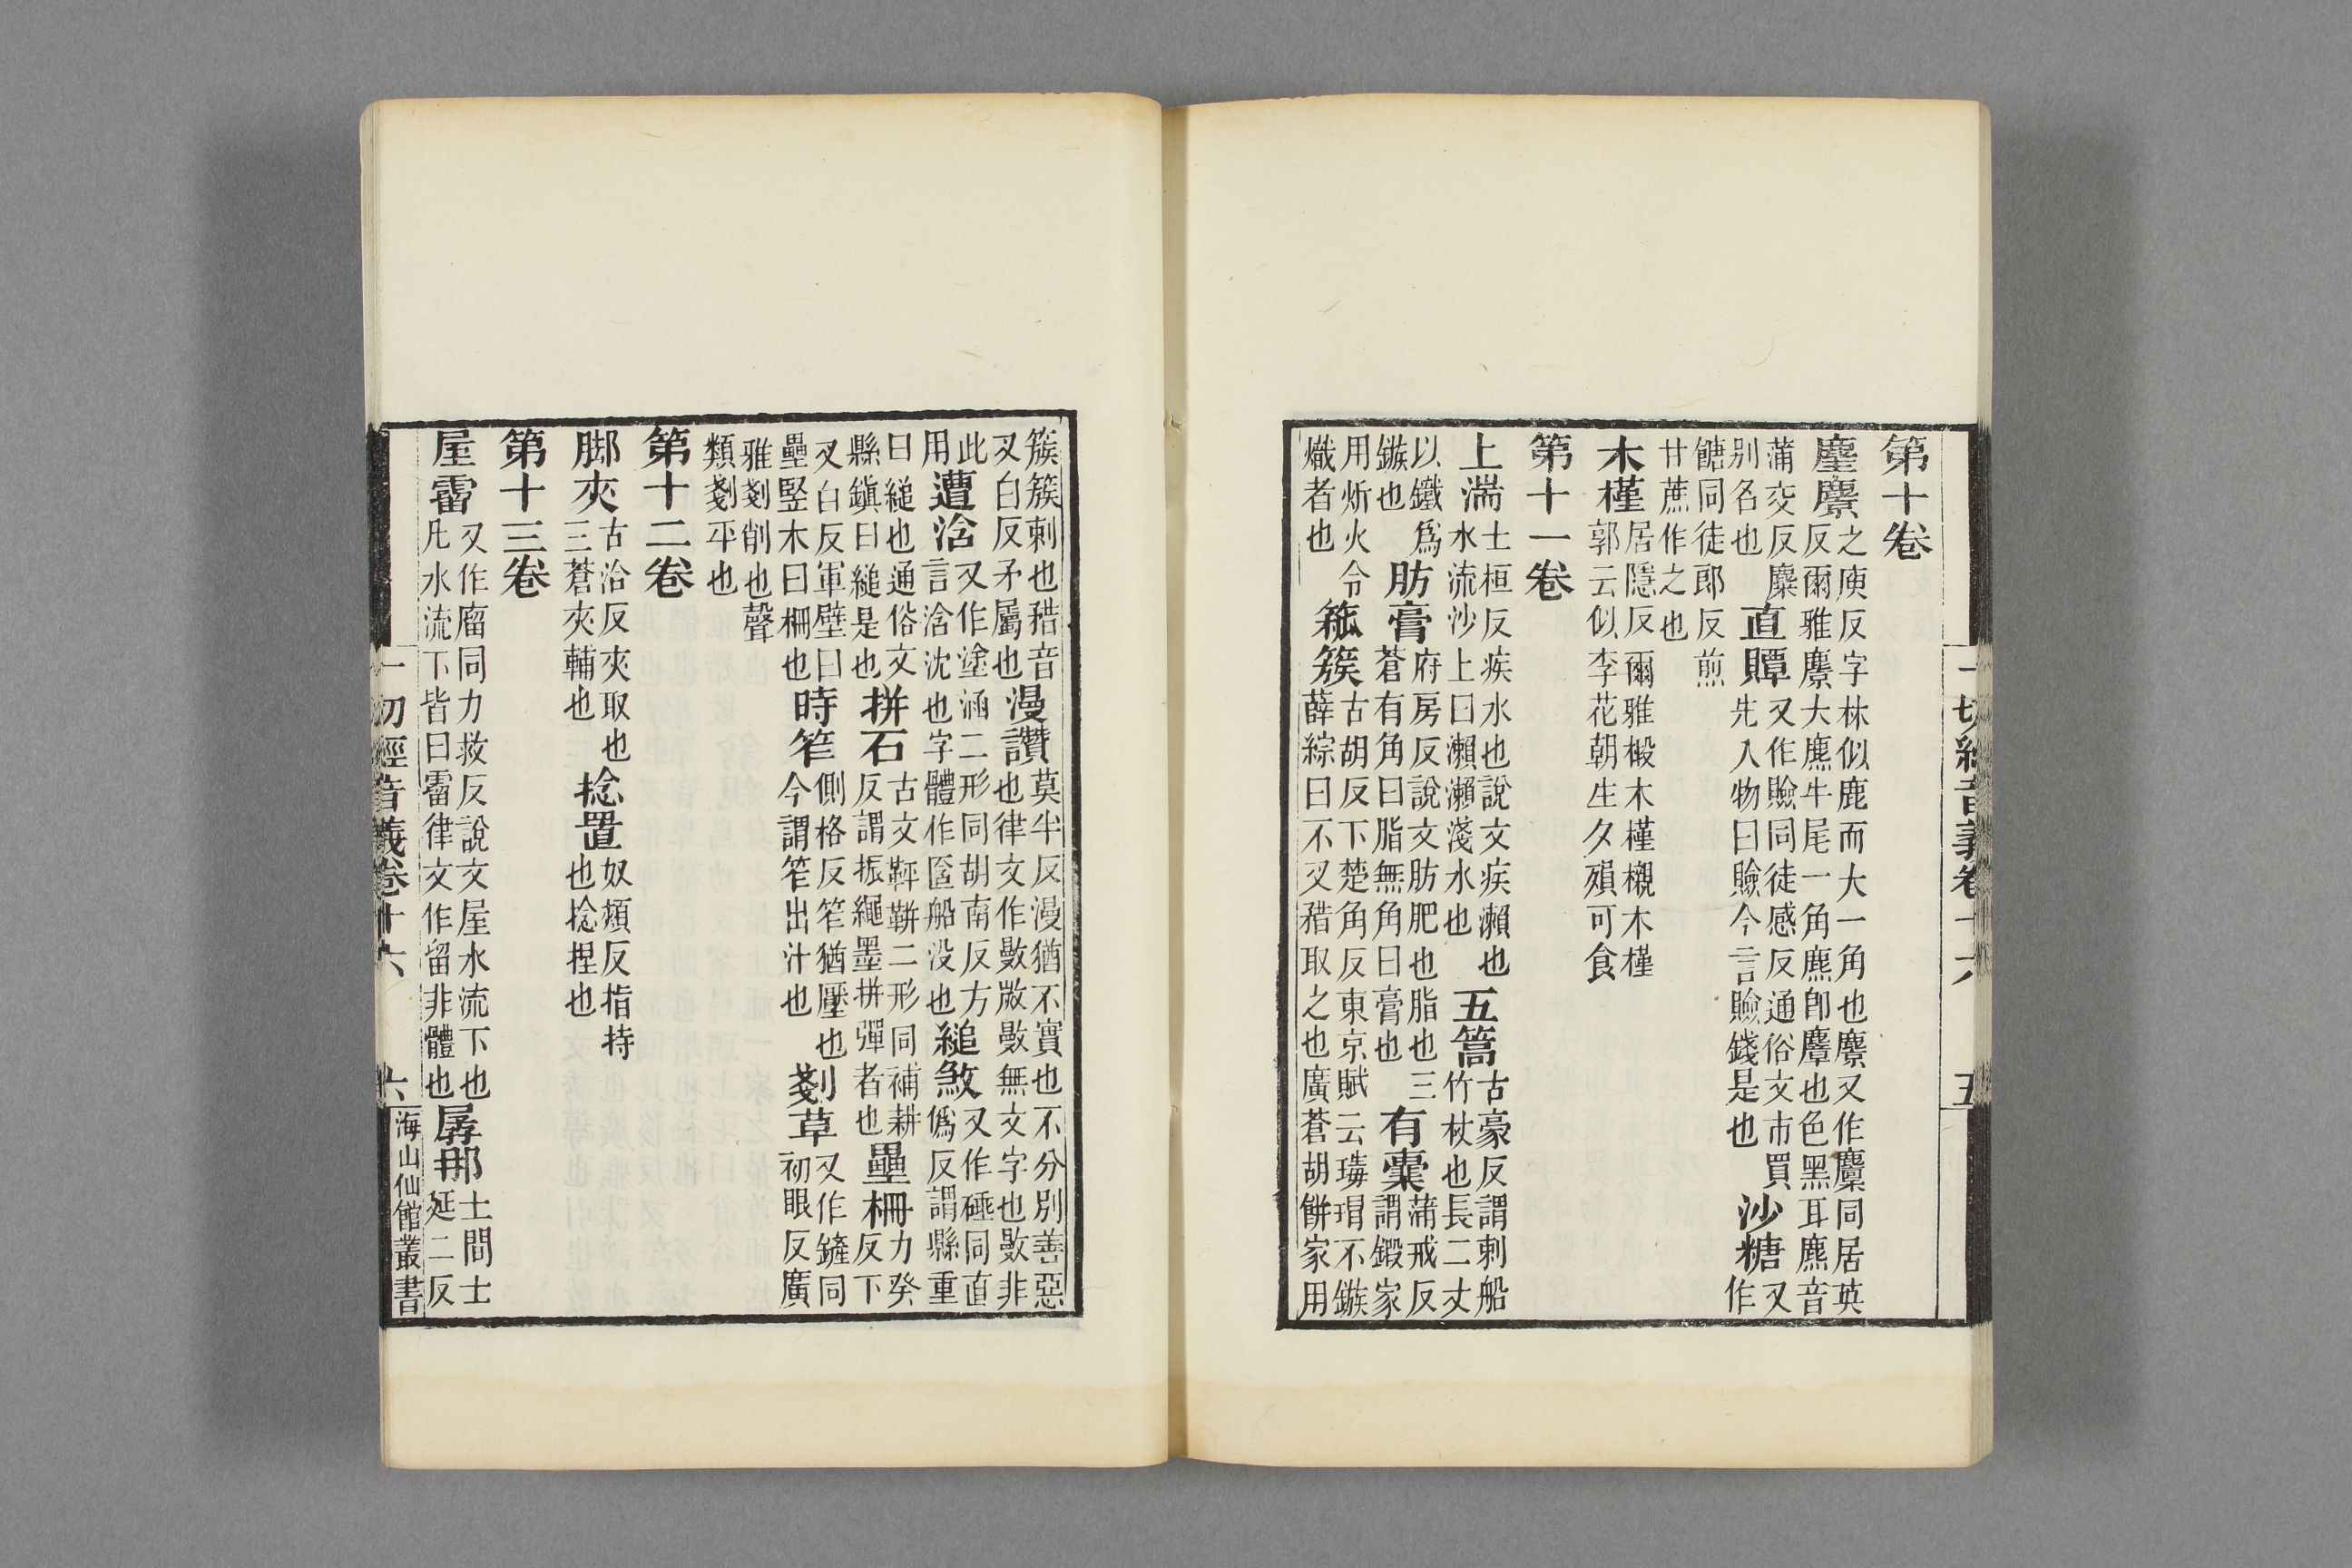 一切經音義卷十六 五
第十卷
麈麖之庾反字林似鹿而大一角也麖又作麠同居英反爾雅麖大麃牛尾一角麃卽麞也色黑耳麃音
蒲交反麋别名也直贉又作賺同徒感反通俗文市買先入物曰賺今言賺錢是也沙糖又作
餹同徒郎反煎甘蔗作之也
木槿居隱反爾雅椴木槿櫬木槿郭云似李花朝生夕殞可食
第十一卷
上湍士桓反疾水也說文疾瀨也水流沙上曰瀨瀨淺水也五篙古豪反謂刺船竹杖也長二丈
以鐵爲鏃也肪膏府房反說文肪肥也脂也三蒼有角曰脂無角曰膏也有橐蒲戒反謂鍛家
用炘火令熾者也箛簇古胡反下楚角反東京賦云瑇瑁不鏃薛綜曰不叉矠取之也廣蒼胡餅家用
簇簇刺也矠音叉白反矛屬也漫讚莫半反漫猶不實也不分别善惡也律文作無文字也非
此用遭浛又作涵二形同胡南反方言浛沈也字體作船没也縋煞又作硾同直僞反謂縣重
曰縋也通俗文縣鎮曰縋是也拼石古文二形同補耕反謂振繩墨拼彈者也壘柵力癸反下
叉白反軍壁曰壘竪木曰柵也時笮側格反笮猶壓也今謂笮出汁也剗草又作鏟同初眼反廣
雅剗削也聲類剗平也
第十二卷
脚夾古洽反夾取也三蒼夾輔也捻置奴頰反指持也捻捏也
第十三卷
屋霤又作廇同力救反說文屋水流下也凡水流下皆曰霤律文作留非體也孱那士閒士延二反
一切經音義卷十六 六 海山仙館叢書